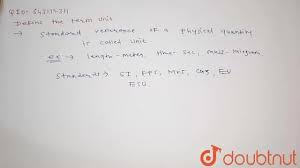 Define the term unit
→ Standard reference of a physical quantity
is called unit
ex → length-meter, time-sec, mass-kilogram
Standard → SI, FPS, MKS, CGS, EU
ESU
doubtnut